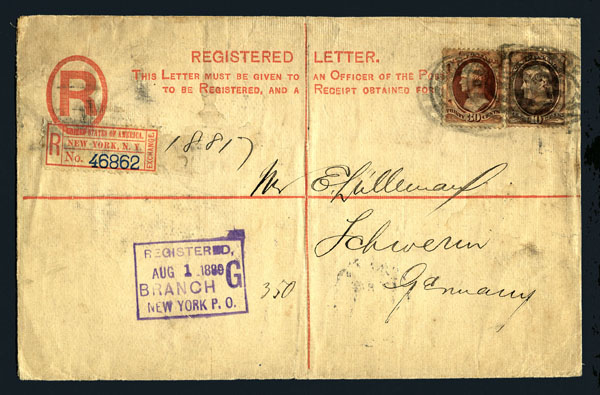 REGISTERED LETTER.
THIS LETTER MUST BE GIVEN TO AN OFFICER OF THE POS
TO BE REGISTERED, AND A RECEIPT OBTAINED FOR
R
30
10
R
UNITED STATES OF AMERICA.
NEW YORK, N. Y.
No. 46862
EXCHANGE
18817
Mr E.
Schwerin
Germany
350
REGISTERED,
AUG 1 1889
BRANCH G
NEW YORK P. O.